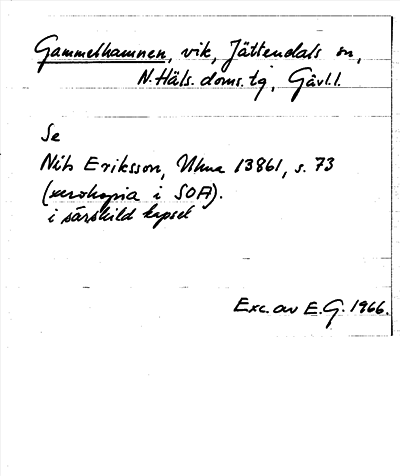 Gammelhamnen, vik, Jättendals sn,
N. Häls. doms. tg, Gävl. l.
Se
Nils Eriksson, Uhma 13861, s. 73
(xerokopia i SOA).
i särskild kapsel
Exc. av E. G. 1966.